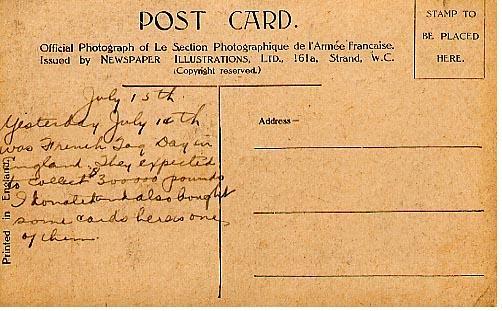 POST CARD.
Official Photograph of Le Section Photographique de l'Armée Francaise.
Issued by NEWSPAPER ILLUSTRATIONS, LTD., 161a, Strand, W.C.
(Copyright reserved.)
STAMP TO
BE PLACED
HERE.
July 15th
Yesterday July 14th
was French Tag Day in
England. They expected
to collect 300000 pounds
I donated and also bought
some cards here is one
of them.
Address—
Printed in England